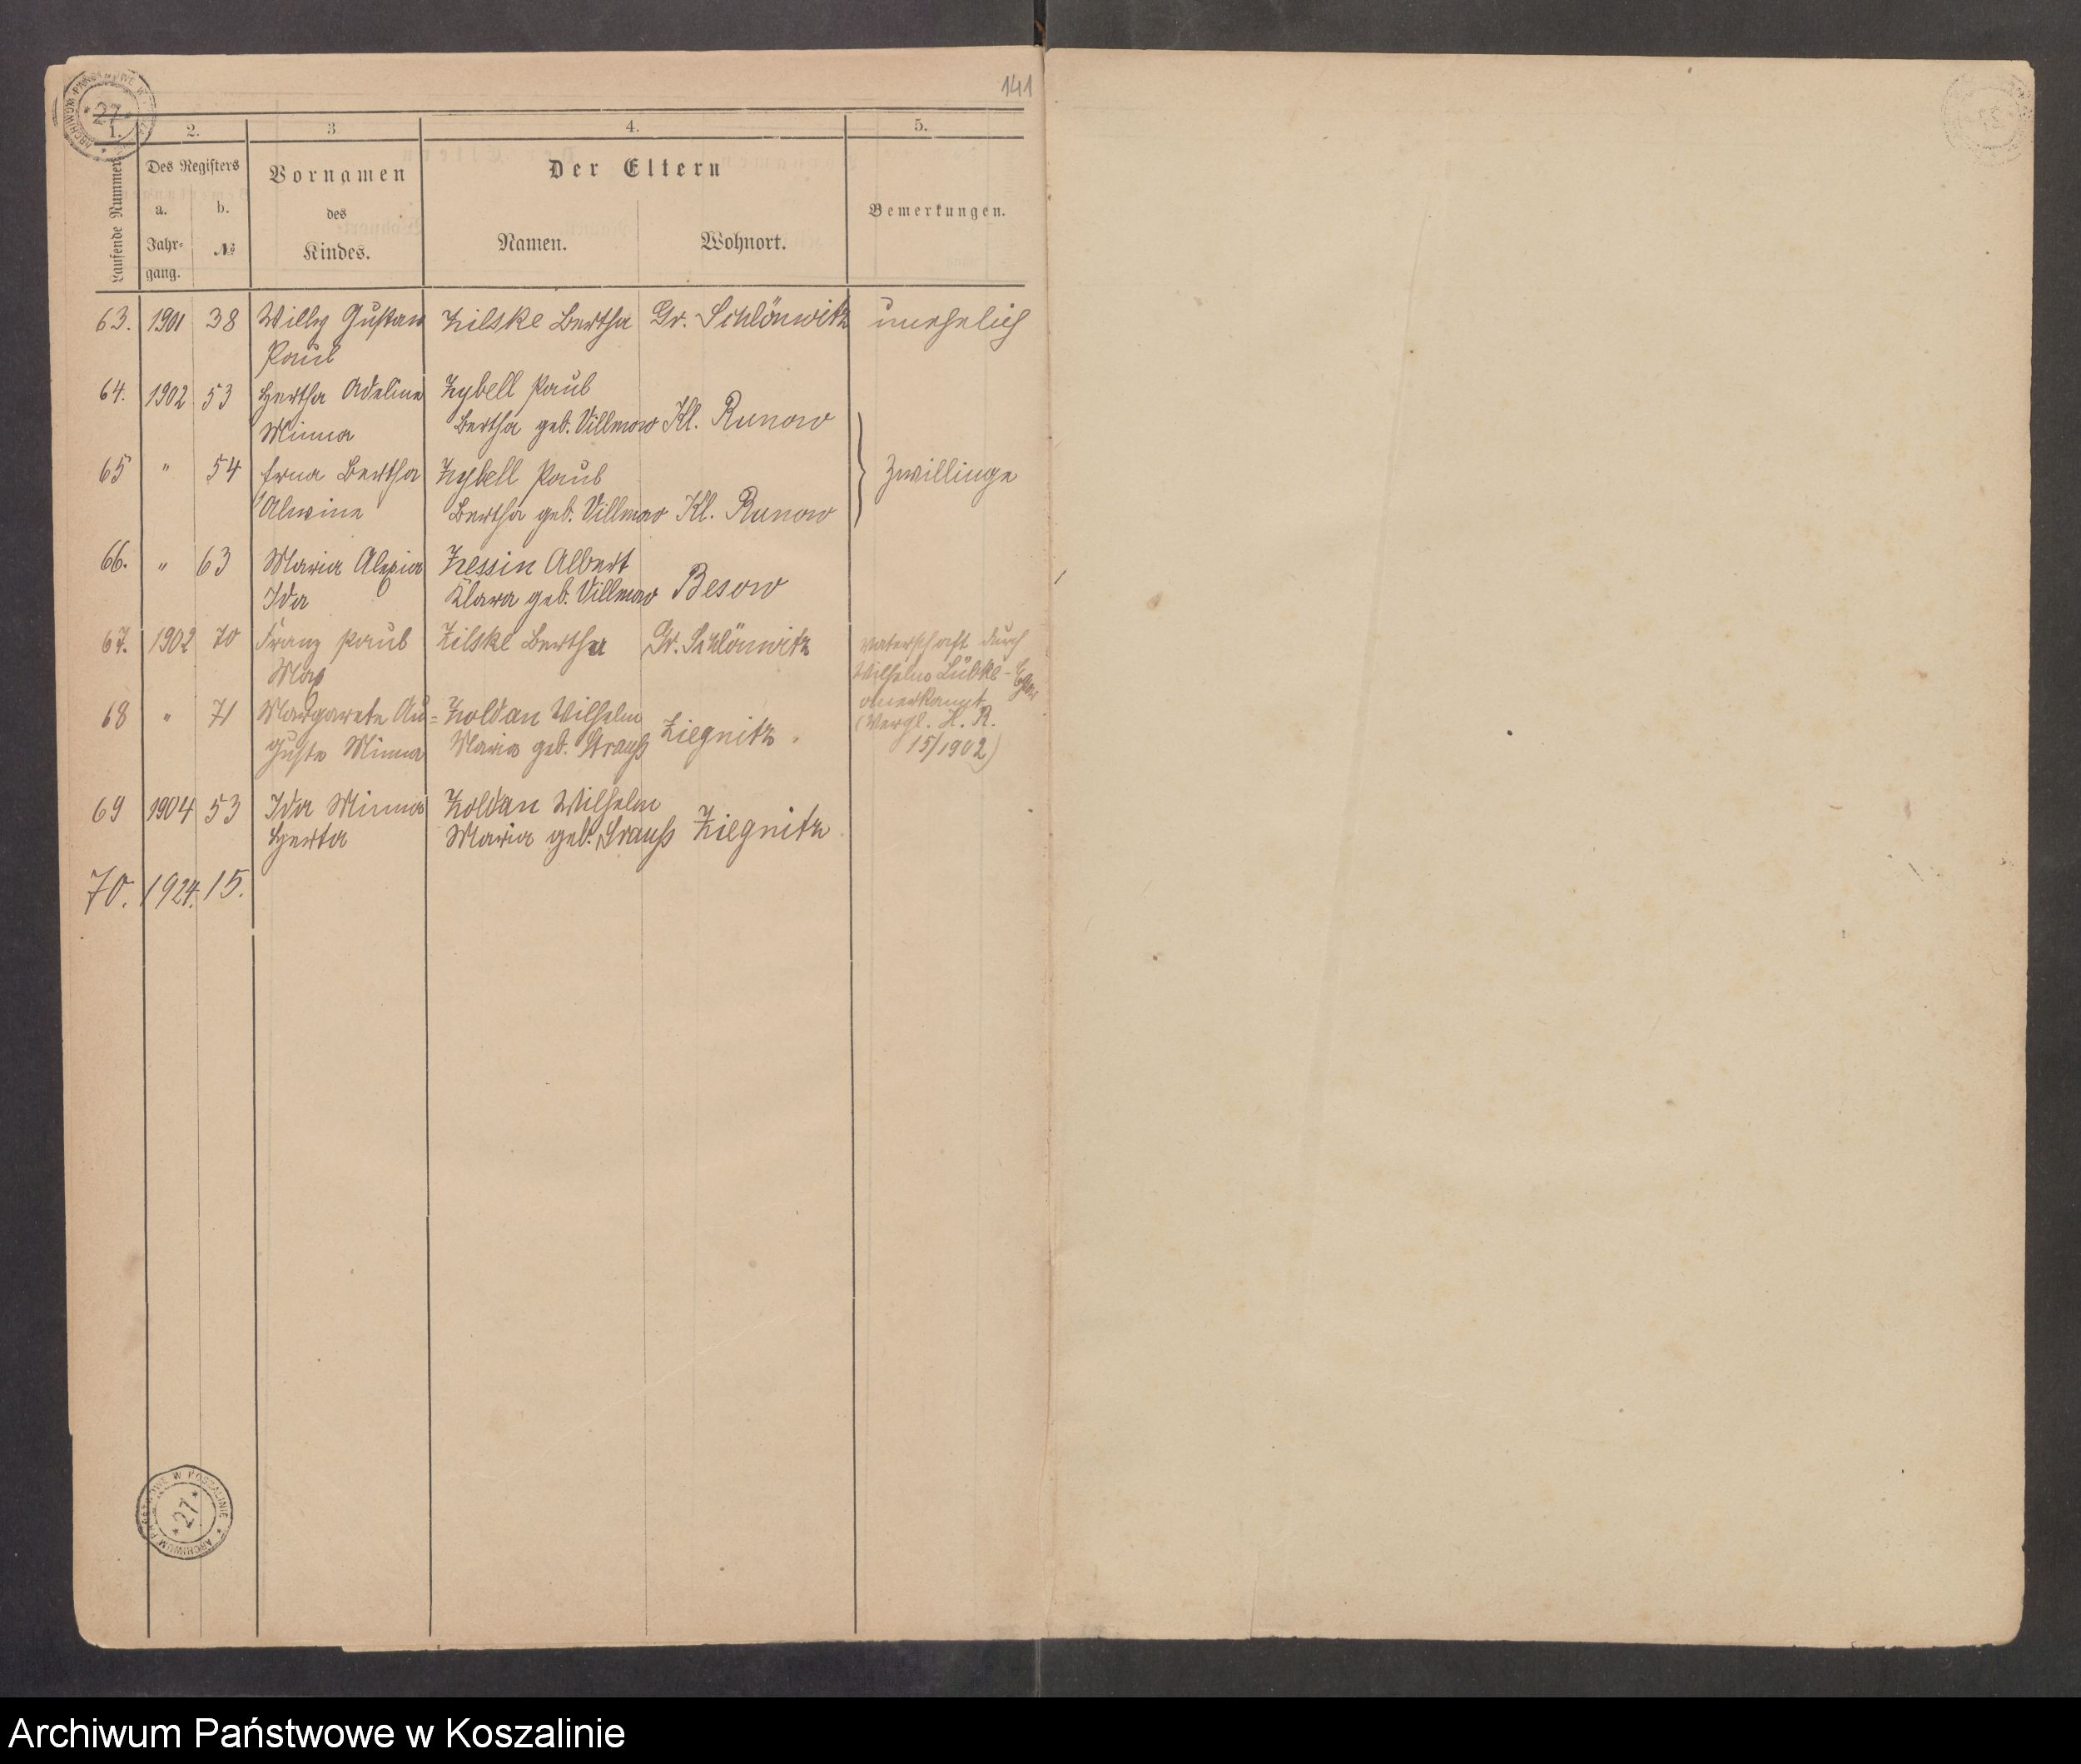 141
1. 2. 3. 4. 5.
Laufende Nummer
Des Registers
a. Jahrgang.
b. №
Vornamen
des
Kindes.
Der Eltern
Namen. Wohnort.
Bemerkungen.
63. 1901 38 Willy Gustav Zilske Bertha Gr. Schlönwitz unehelich
Paul
64. 1902 53 Hertha Adeline Zybell Paul
Minna Bertha geb. Villmow Kl. Runow
65 " 54 Erna Bertha Zybell Paul Zwillinge
Alwine Bertha geb. Villmow Kl. Runow
66. " 63 Maria Zessin Albert
Ida Klara geb. Villmow Besow
67. 1902 70 Franz Paul Zilske Bertha Gr. Schlönwitz Vaterschaft durch
Max Wilhelm Lübke-
anerkannt
68 " 71 Margarete Au= Zoldan Wilhelm (Vergl. H. R.
guste Minna Maria geb. Strauß Ziegnitz. 15/1902)
69 1904 53 Ida Minna Zoldan Wilhelm
Herta Maria geb. Strauß Ziegnitz
70. 1924. 15.
ARCHIWUM PAŃSTWOWE W KOSZALINIE
27
Archiwum Państwowe w Koszalinie